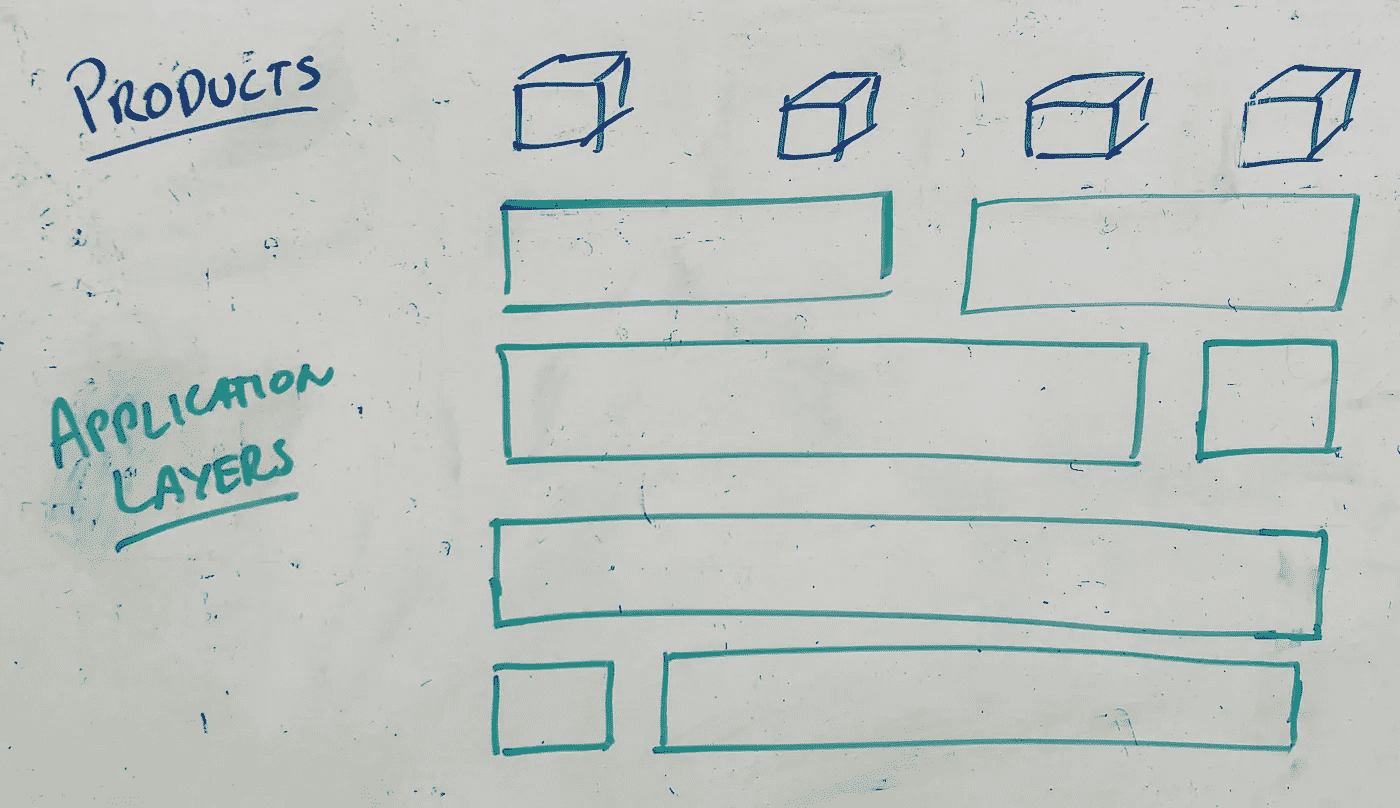 PRODUCTS
APPLICATION
LAYERS